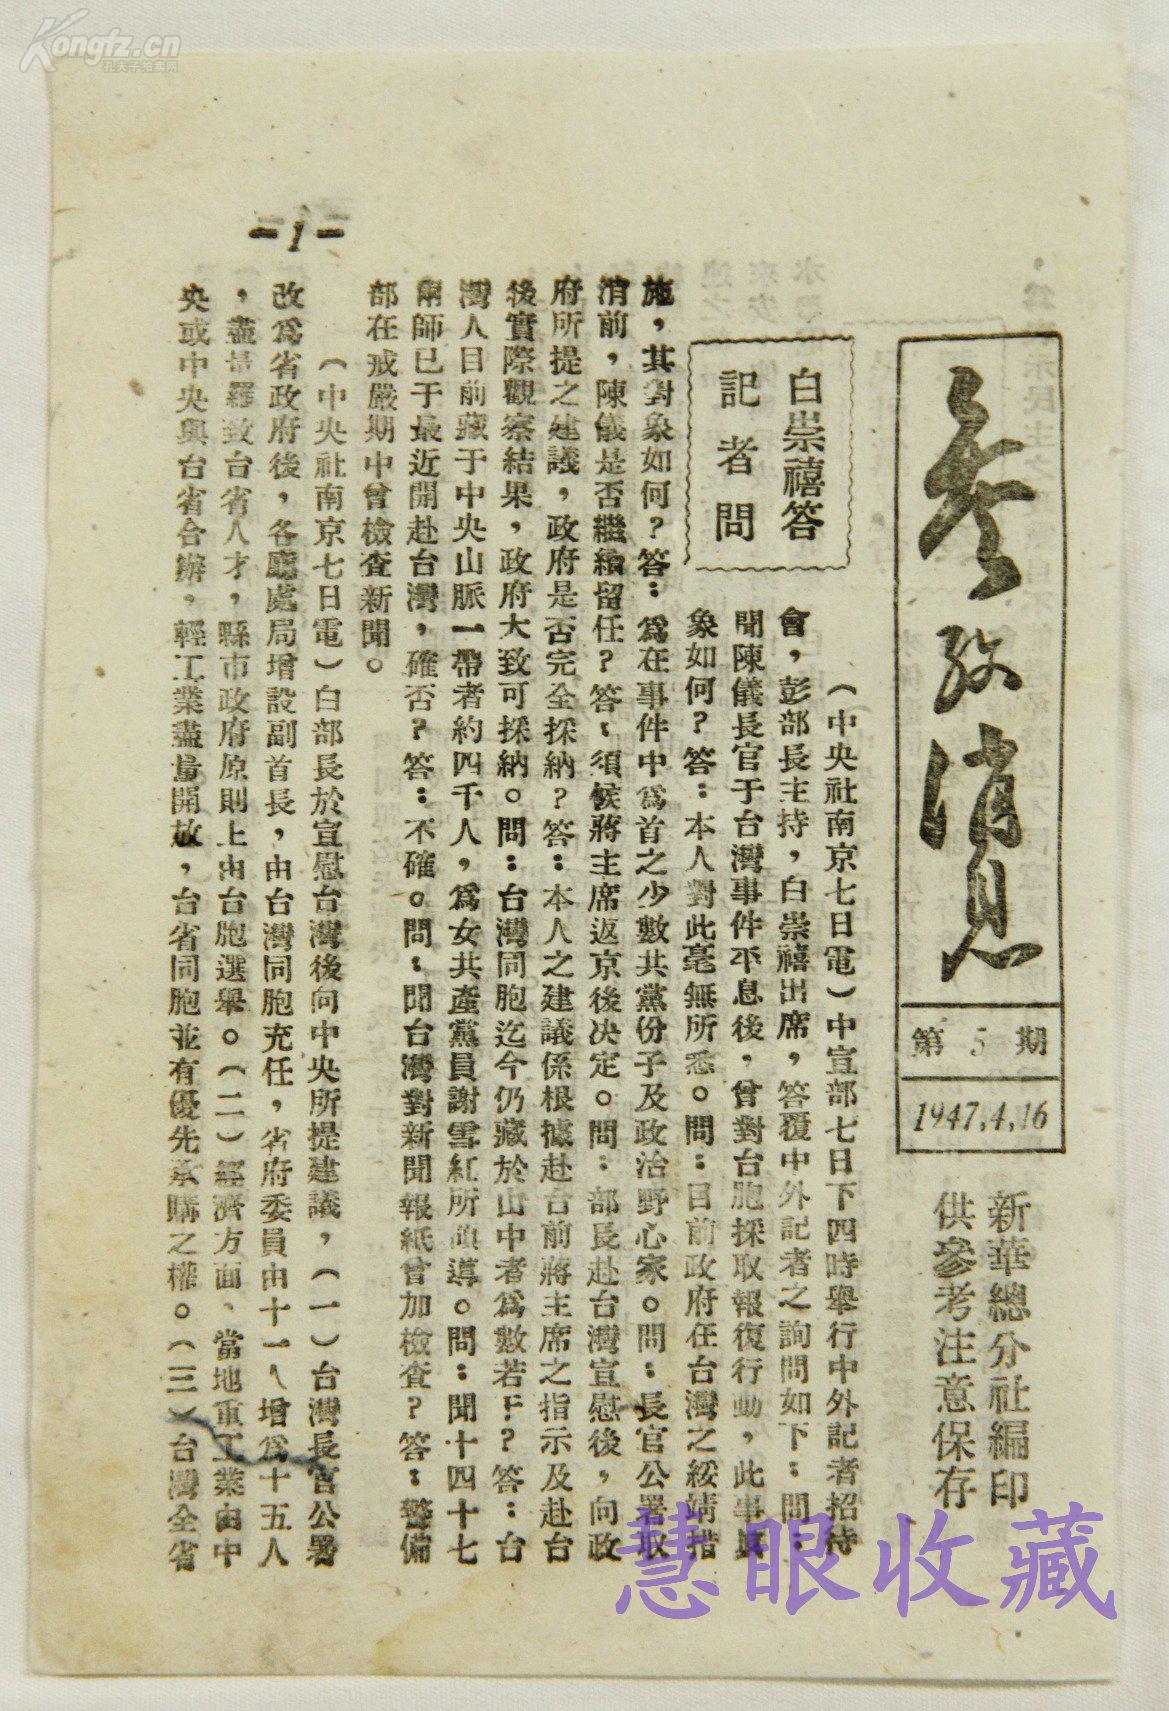 Kongfz.cn
孔夫子拍卖网
参攷消息
第 5 期
1947.4.16
新華總分社編印
供參考注意保存
白崇禧答
記者問
（中央社南京七日電）中宣部七日下四時舉行中外記者招待
會，彭部長主持，白崇禧出席，答覆中外記者之詢問如下：問：
聞陳儀長官于台灣事件平息後，曾對台胞採取報復行動，此事眞
象如何？答：本人對此毫無所悉。問：目前政府在台灣之綏靖措
施，其對象如何？答：爲在事件中爲首之少數共黨份子及政治野心家。問：長官公署取
消前，陳儀是否繼續留任？答：須候蔣主席返京後决定。問：部長赴台灣宣慰後，向政
府所提之建議，政府是否完全採納？答：本人之建議係根據赴台前蔣主席之指示及赴台
後實際觀察結果，政府大致可採納。問：台灣同胞迄今仍藏於山中者爲數若干？答：台
灣人目前藏于中央山脈一帶者約四千人，爲女共產黨員謝雪紅所領導。問：聞十四十七
兩師已于最近開赴台灣，確否？答：不確。問：聞台灣對新聞報紙曾加檢查？答：警備
部在戒嚴期中曾檢查新聞。
（中央社南京七日電）白部長於宣慰台灣後向中央所提建議，（一）台灣長官公署
改爲省政府後，各廳處局增設副首長，由台灣同胞充任，省府委員由十一人增爲十五人
，盡量羅致台省人才，縣市政府原則上由台胞選舉。（二）經濟方面、當地重工業由中
央或中央與台省合辦，輕工業盡量開放，台省同胞並有優先承購之權。（三）台灣全省
=1=
慧眼收藏